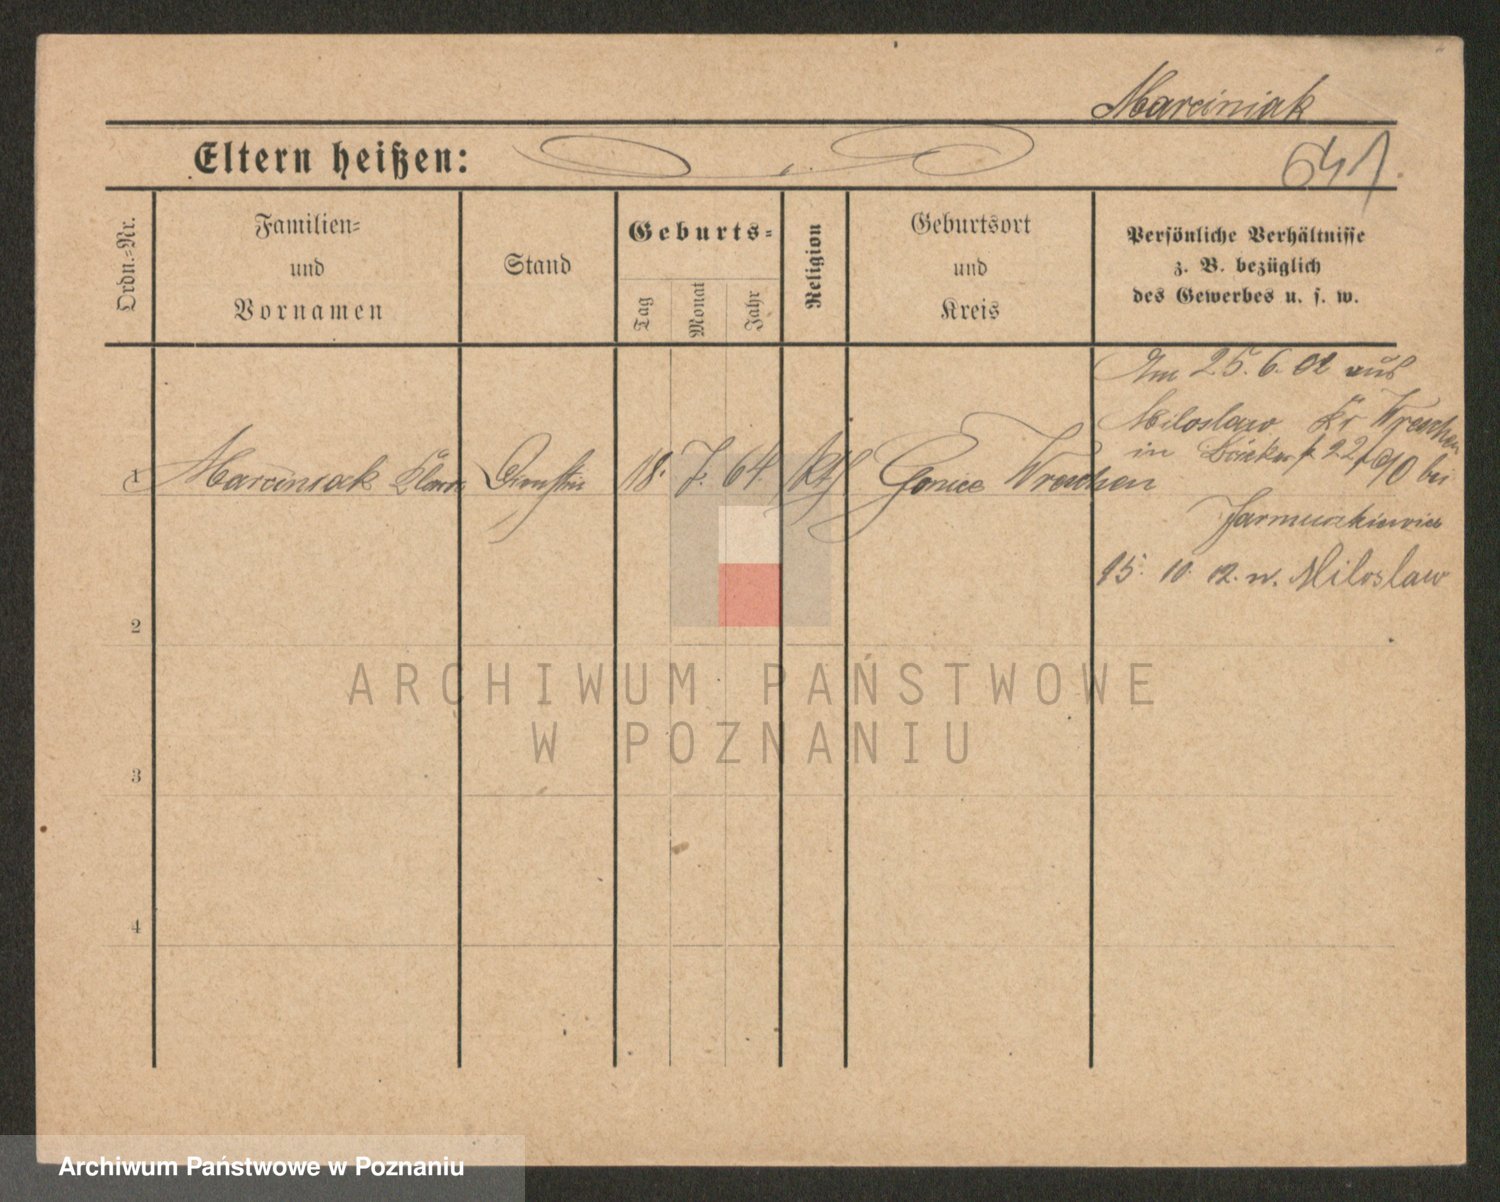 Marciniak
Eltern heißen:
641.
Ordn.-Nr.
Familien-
und
Vornamen
Stand
Geburts-
Tag
Monat
Jahr
Religion
Geburtsort
und
Kreis
Persönliche Verhältnisse
z. B. bezüglich
des Gewerbes u. s. w.
1 Marciniak 18. 7. 64. Kth Gonice Wreschen
Am 25. 6. 02 aus
Miloslaw Kr Wreschen
in bei
Jarmuszkiewicz
15. 10. 02. n. Miloslaw
2
3
4
ARCHIWUM PAŃSTWOWE
W POZNANIU
Archiwum Państwowe w Poznaniu